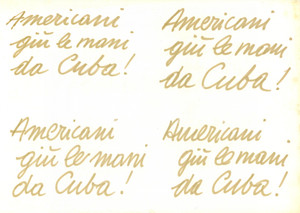 Americani
giù le mani
da Cuba!
Americani
giù le mani
da Cuba!
Americani
giù le mani
da Cuba!
Americani
giù le mani
da Cuba!